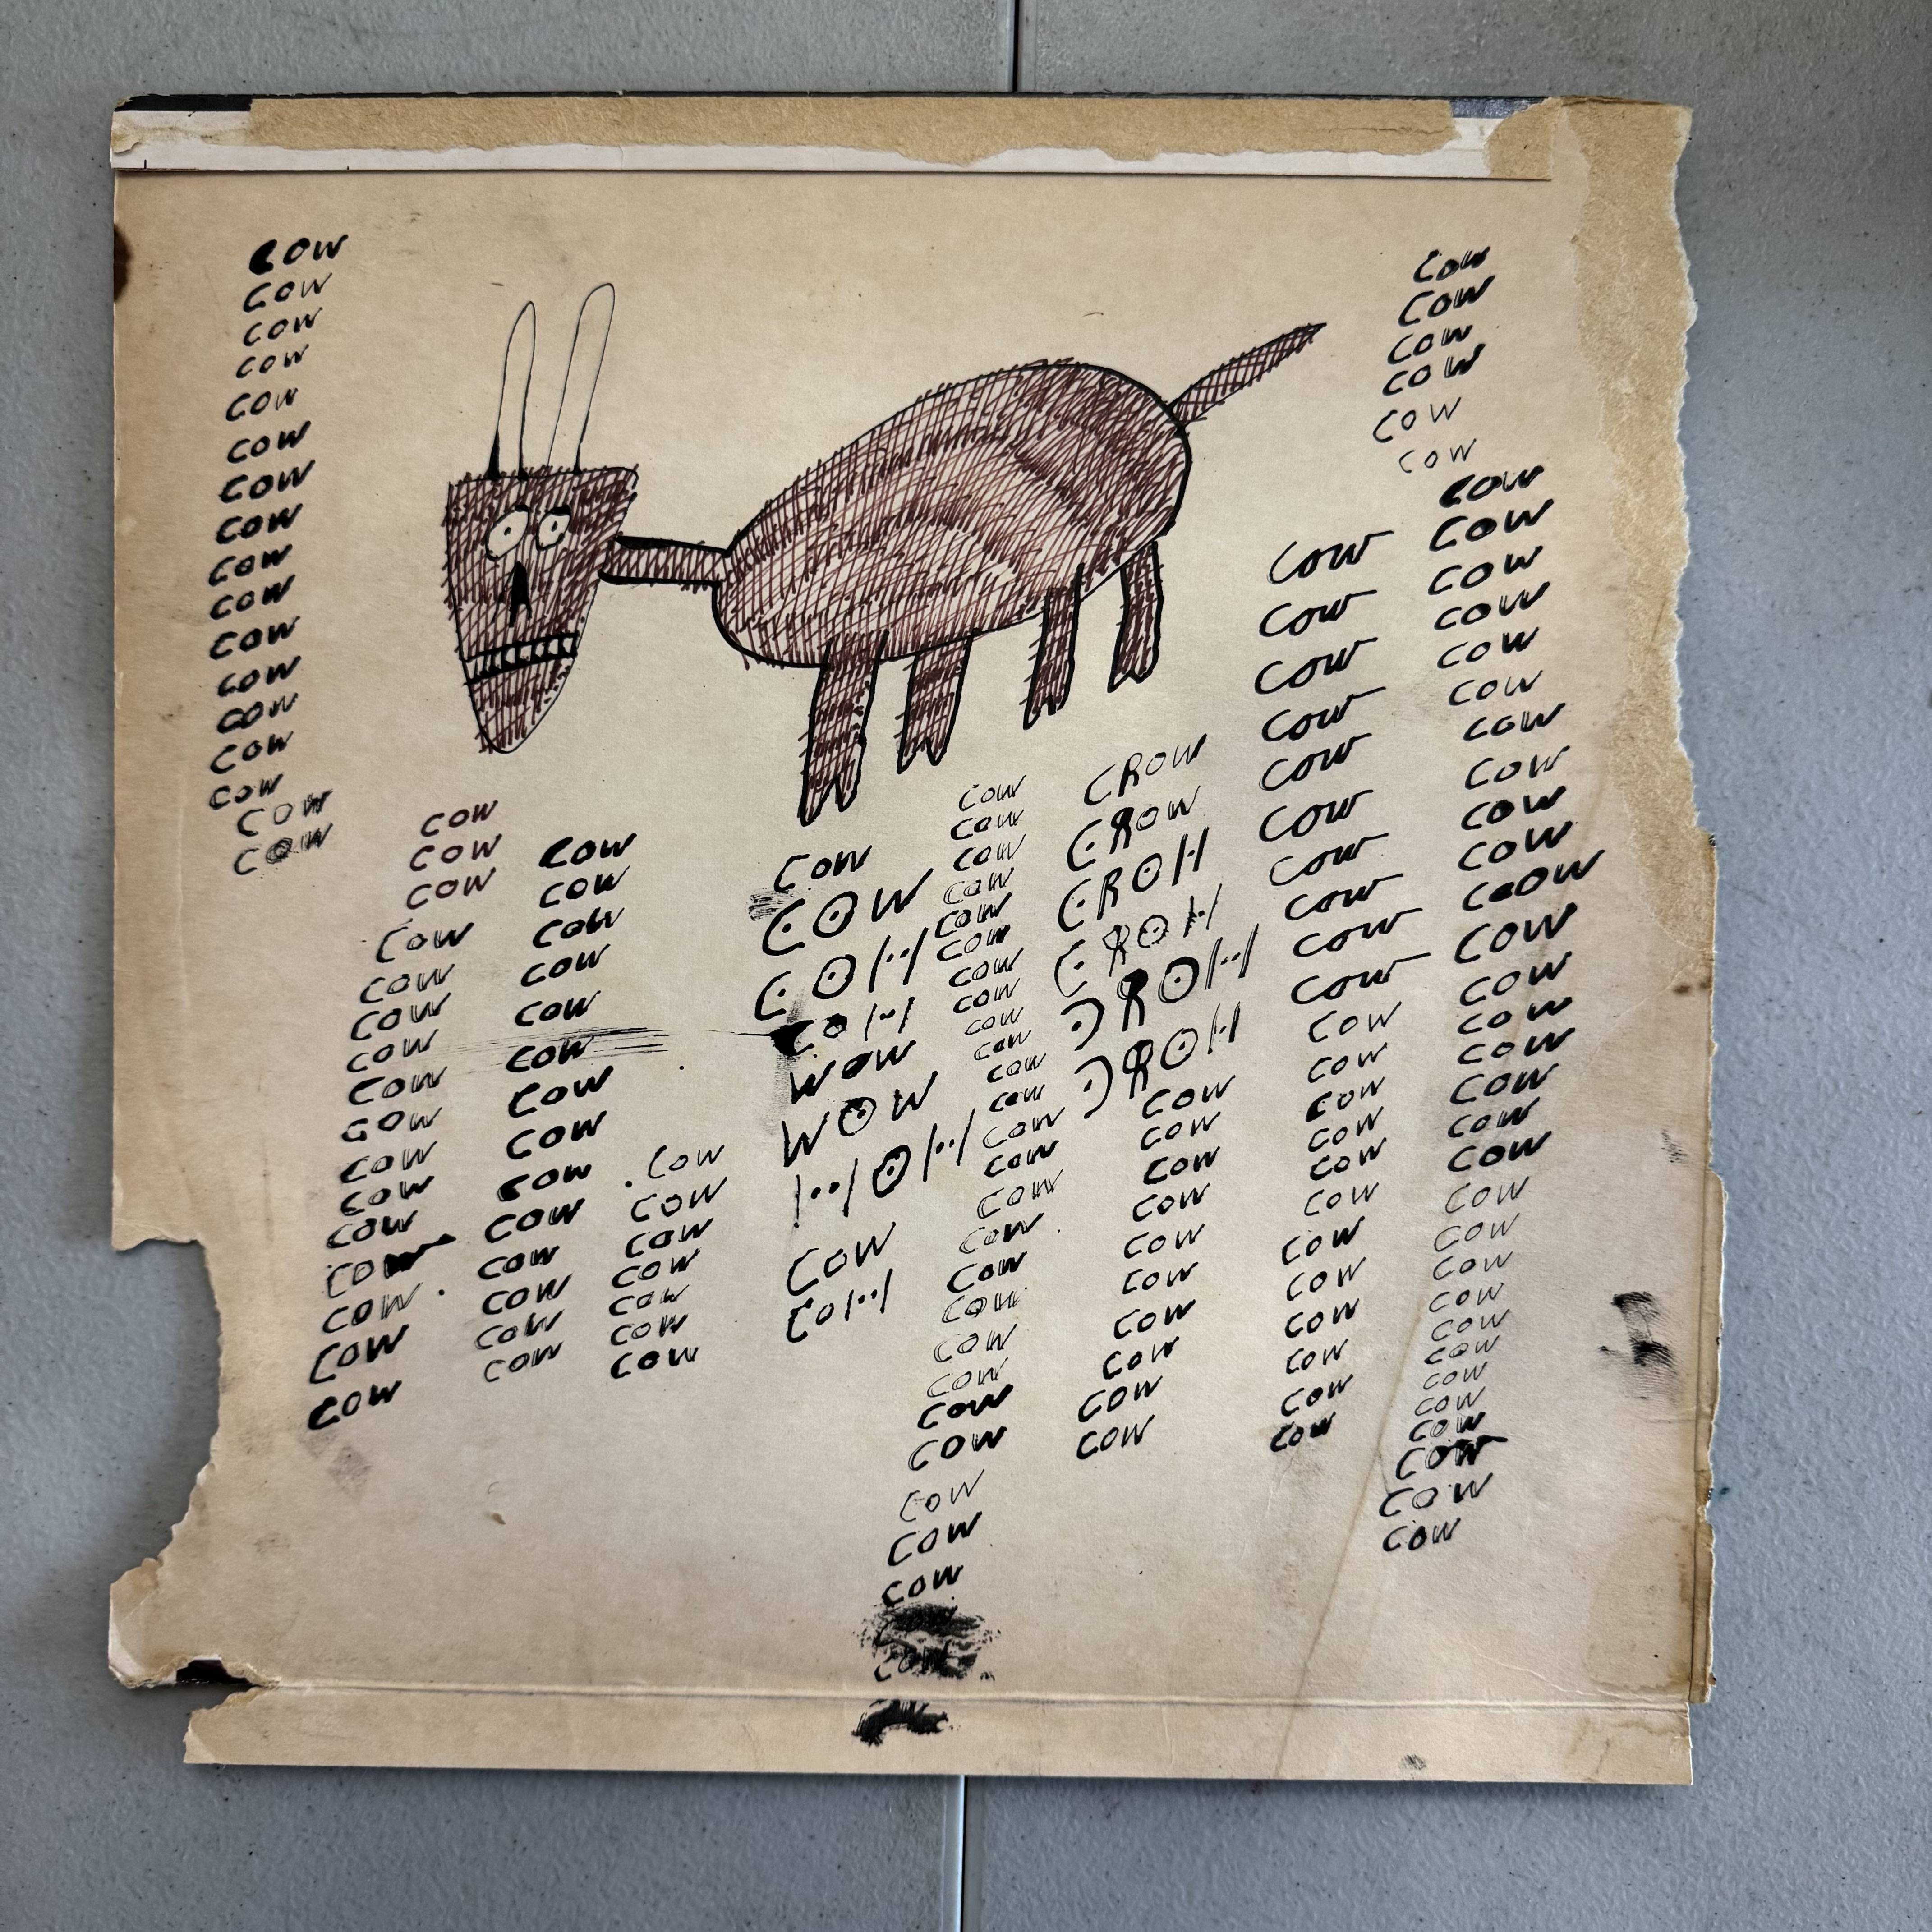 COW
COW
COW
COW
COW
COW
COW
COW
COW
COW
COW
COW
COW
COW
COW
COW
COW
COW
COW
COW
COW
COW
COW
COW
COW
COW
COW
COW
COW
COW
COW
COW
COW
COW
COW
COW
COW
COW
COW
COW
COW
COW
COW
COW
COW
COW
COW
COW
COW
COW
COW
COW
COW
COW
COW
COW
CO|··|
CO|··|
WOW
WOW
|··|O|··|
COW
CO|··|
COW
COW
COW
COW
COW
COW
COW
COW
COW
COW
COW
COW
COW
COW
COW
COW
COW
COW
COW
COW
COW
COW
COW
COW
COW
CROW
CROW
CRO|·|
CRO|·|
ƆRO|··|
ƆRO|·|
COW
COW
COW
COW
COW
COW
COW
COW
COW
COW
COW
COW
COW
COW
COW
COW
COW
COW
COW
COW
COW
COW
COW
COW
COW
COW
COW
COW
COW
COW
COW
COW
COW
COW
COW
COW
COW
COW
COW
COW
COW
COW
COW
COW
COW
COW
COW
COW
CCOW
COW
COW
COW
COW
COW
COW
COW
COW
COW
COW
COW
COW
COW
COW
COW
COW
COW
COW
COW